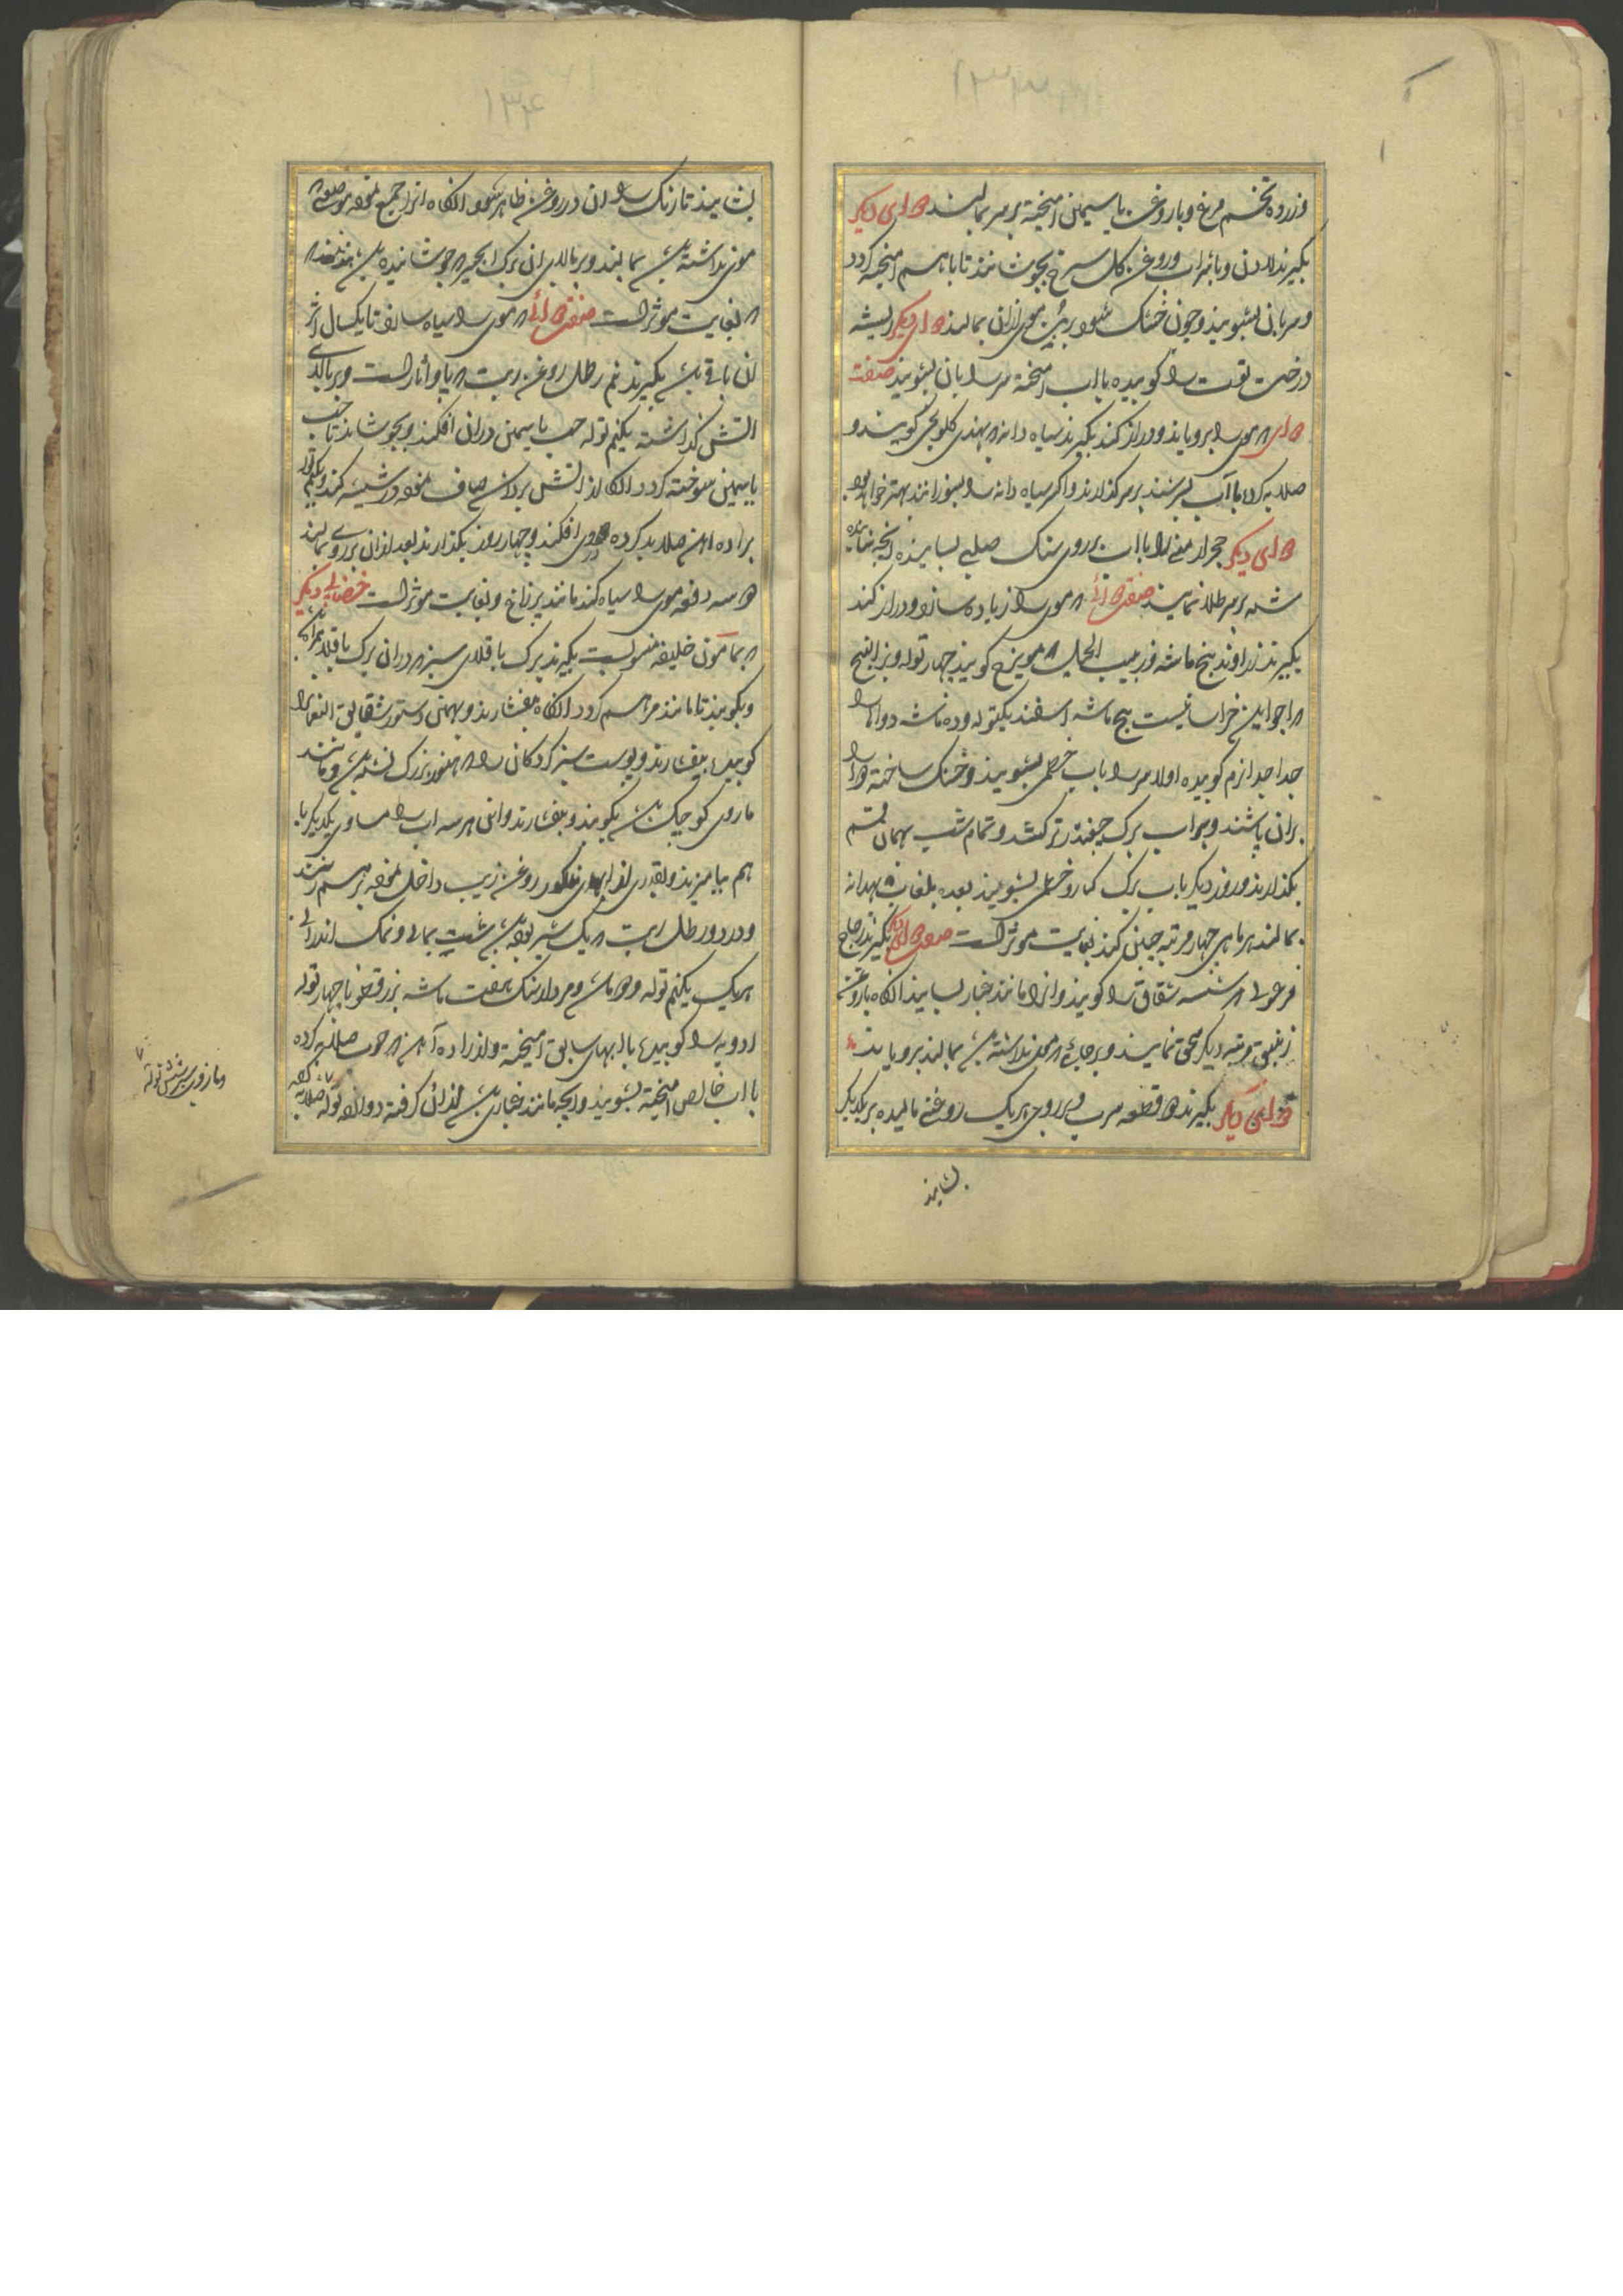 ۱۳۳
وزرده تخم مرغ و با روغن یاسمین امیخته بر سر بمالند دوای دیکر
بکیرند لادن و با شراب و روغن کل سرخ بجوشانند تا با هم امیخته کردد
و سر بان بشویند و چون خشک شود بازان بمالند دوای دیکر ریشه
درخت توت را کوبیده با اب امیخته سر را بان بشویند صفت
دوای که موی را برویاند و دراز کند بکیرند سیاه دانه که بهندی کلونجی کویند و
صلایه کرده با آب بسرشند بر سر کذارند و اکر سیاه دانه را بسوزانند بهتر خواهد بود
دوای دیکر حجر ارمنی را با اب بر روی سنک صلب بسایند انچه سائیده
شد بر سر طلا نمایند صفت دوائی که موی را زیاده سازد و دراز کند
بکیرند زراوند پنج ماشه و زبیب الجبل که مویزج کویند چهار توله و بزر البنج
که اجواین خراسانیست پنج ماشه اسفند یکتوله و ده ماشه دواها را
جدا جدا نرم کوبیده اولا سر را باب خطمی بشویند و خشک ساخته دوا را
بران پاشند و بر اب برک چغندر تر کنند و تمام شب بهمان قسم
بکذارند و روز دیکر باب برک کنار و خطمی بشویند بعده بلعاب بهدانه
بمالند هر ماهی چهار مرتبه چنین کنند بغایت موثر است صفت دوای دیکر بکیرند زجاج
فرعونی که شیشه شفاف را کویند و انرا مانند غبار بسایند انکاه با روغن
زنبق مرتبه دیکر سحق نمایند و بر جائی که موی نداشته باشد بمالند برویاند
دوای دیکر بکیرند دو قطعه سرب و بر روی هر یک روغن مالیده بر یکدیکر
بسایند
۱۳۴
بسایند تا رنک سرب ان در روغن ظاهر شود انکاه انرا جمع نموده بر موضعی که
موی نداشته باشد بمالند و بر بالای ان برک انجیر که جوشانیده باشند بنهند
که بغایت موثر است صفت دوائی که موی را سیاه سازد تا یکسال اثر
ان باقی باشد بکیرند نیم رطل روغن زیت که پاو اثار است و بر بالای
اتش کذاشته یکنیم توله حب یاسمین دران افکنند و بجوشانند تا حب
یاسمین سوخته کردد انکاه از اتش برداشته صاف نموده در شیشه کنند و یکنیم توله
براده اهن صلایه کرده در وی افکنند و چهار روز بکذارند بعد ازان بر روی بمالند
دو سه دفعه موی را سیاه کند مانند پر زاغ و بغایت موثر است خضابی دیکر
که بمامون خلیفه منسوبست بکیرند برک باقلای سبز که دران برک باقلا تر باشد
و بکوبند تا مانند مرهم کردد انکاه بفشارند و بهمین دستور شقایق النعمان را
کوبیده بیفشارند و پوست سبز کردکان را که هنوز بزرک نشده باشد و مانند
مازوی کوچک باشد بکوبند و بفشارند و این هر سه اب را مساوی یکدیکر با
هم بیامیزند و بقدری از ابهای مذکور روغن زیت داخل نموده بر هم زنند
و در دو رطل زیت که یک سیر بوده باشد شب یمانی و نمک اندرانی
هر یک یکنیم توله و دو ماشه و مردارسنک هفت ماشه بزرقطونا چهار توله
ادویه را کوبیده با ابهای سابق امیخته و از براده آهن که خوب صلایه کرده
با اب خالص امیخته بشویند و انچه مانند غبار باشد ازان کرفته دوازده توله صلایه کرده
و مازوی شش توله